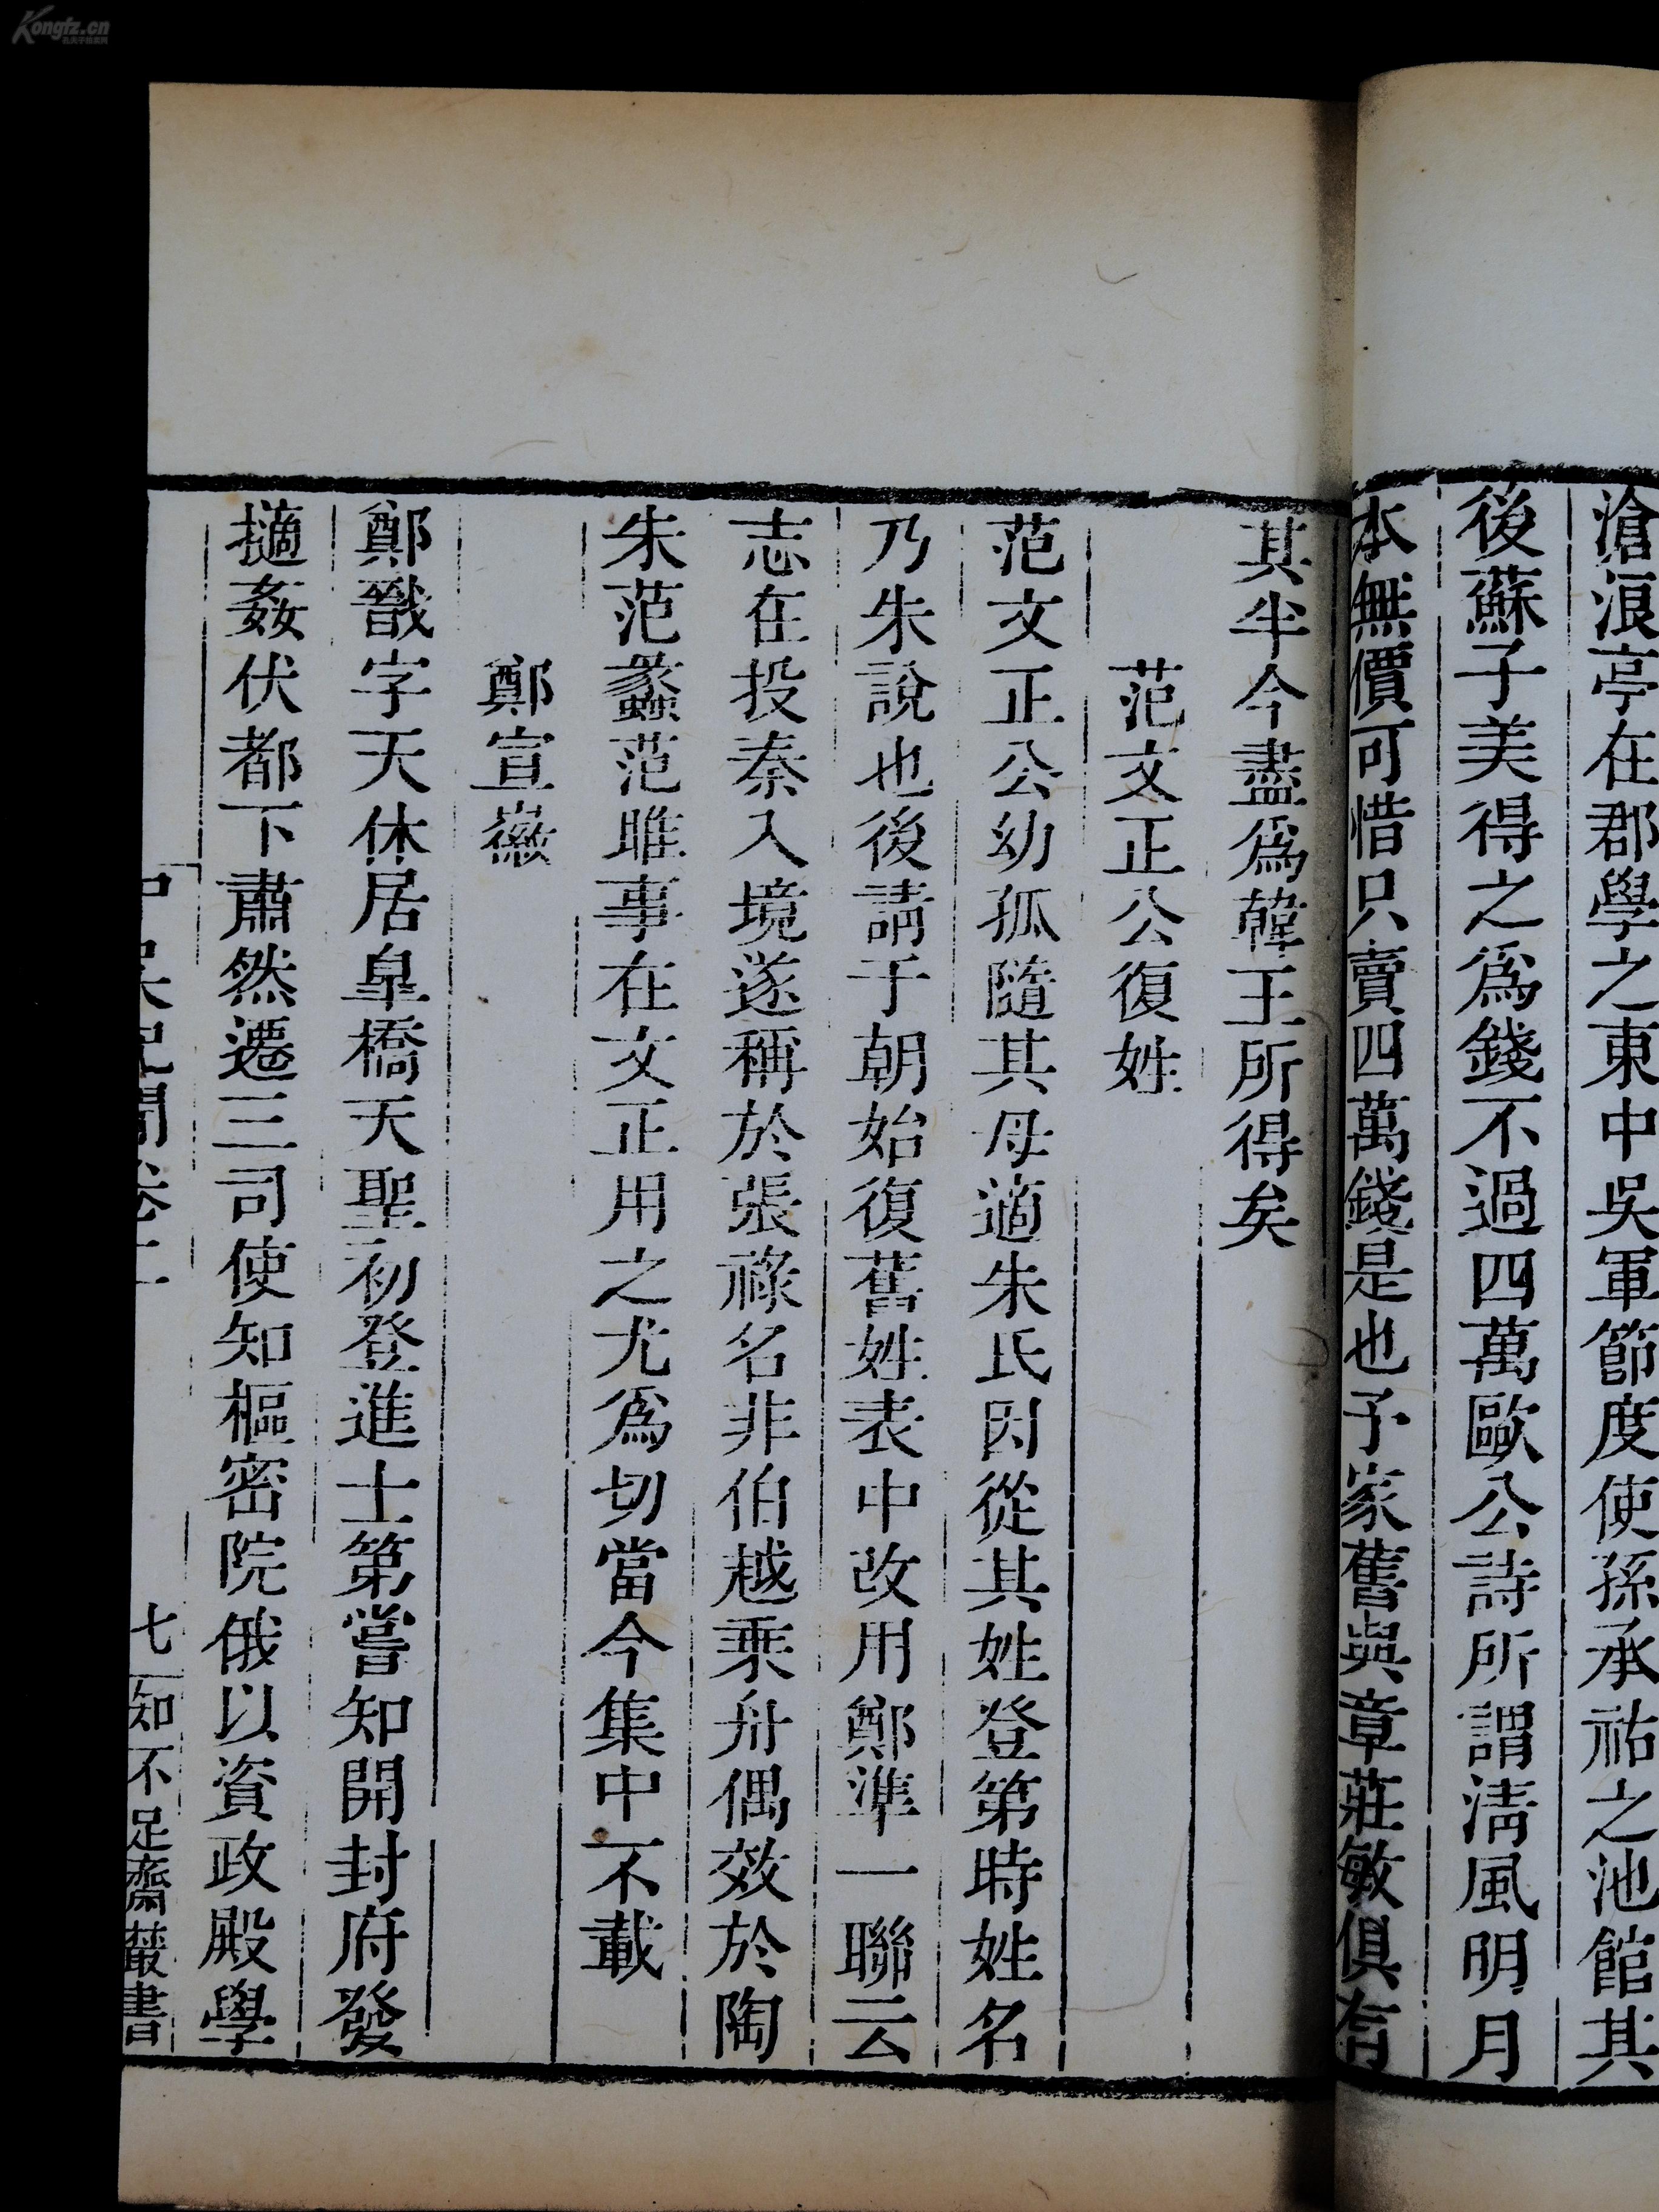 滄浪亭在郡學之東中吳軍節度使孫承祐之池館其
後蘇子美得之爲錢不過四萬歐公詩所謂淸風明月
本無價可惜只賣四萬錢是也予家舊與章莊敏俱有
其半今盡爲韓王所得矣
范文正公復姓
范文正公幼孤隨其母適朱氏因從其姓登第時姓名
乃朱說也後請于朝始復舊姓表中改用鄭準一聯云
志在投秦入境遂稱於張祿名非伯越乘舟偶效於陶
朱范蠡范雎事在文正用之尤爲切當今集中不載
鄭宣徽
鄭戩字天休居皐橋天聖初登進士第嘗知開封府發
擿姦伏都下肅然遷三司使知樞密院俄以資政殿學
中吳紀聞卷二
七
知不足齋叢書
Kongfz.cn
孔夫子旧书网